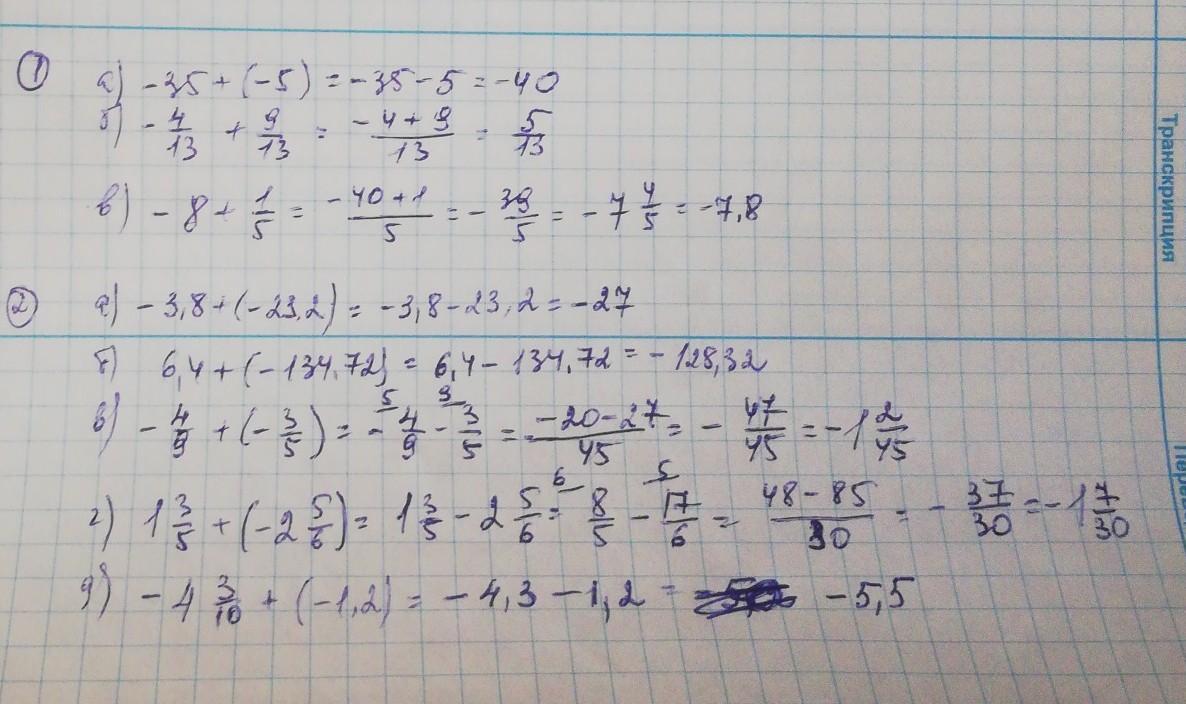 ① а) -35 + (-5) = -35 - 5 = -40
б) - 4/13 + 9/13 = (-4+9)/13 = 5/13
в) - 8 + 1/5 = (-40+1)/5 = - 39/5 = - 7 4/5 = -7,8
② а) - 3,8 + (-23,2) = -3,8 - 23,2 = -27
б) 6,4 + (-134,72) = 6,4 - 134,72 = - 128,32
5 9
в) - 4/9 + (- 3/5) = - 4/9 - 3/5 = (-20-27)/45 = - 47/45 = -1 2/45
6 5
г) 1 3/5 + (-2 5/6) = 1 3/5 - 2 5/6 = 8/5 - 17/6 = (48-85)/30 = - 37/30 = -1 7/30
д) - 4 3/10 + (-1,2) = - 4,3 - 1,2 = - 5,5
Транскрипция